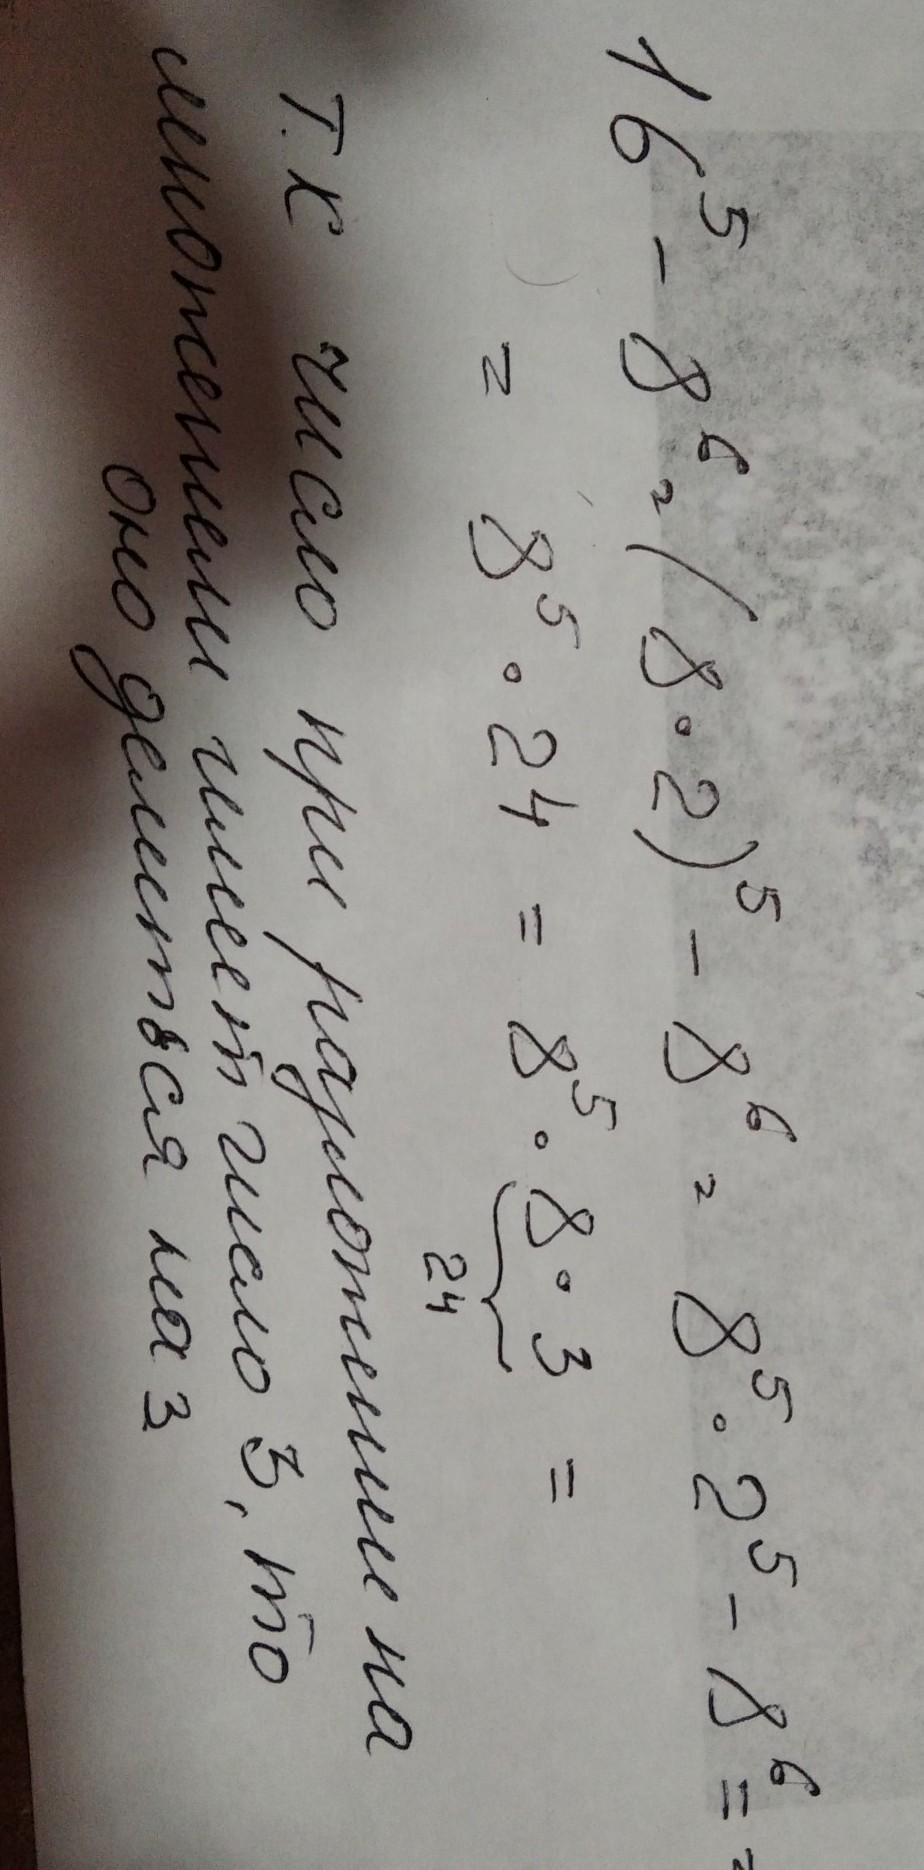 16⁵ - 8⁶ = (8·2)⁵ - 8⁶ = 8⁵·2⁵ - 8⁶ = =
= 8⁵·24 = 8⁵·8·3 =
24
т.к число при разложении на
множетели имеет число 3, то
оно делиться на 3